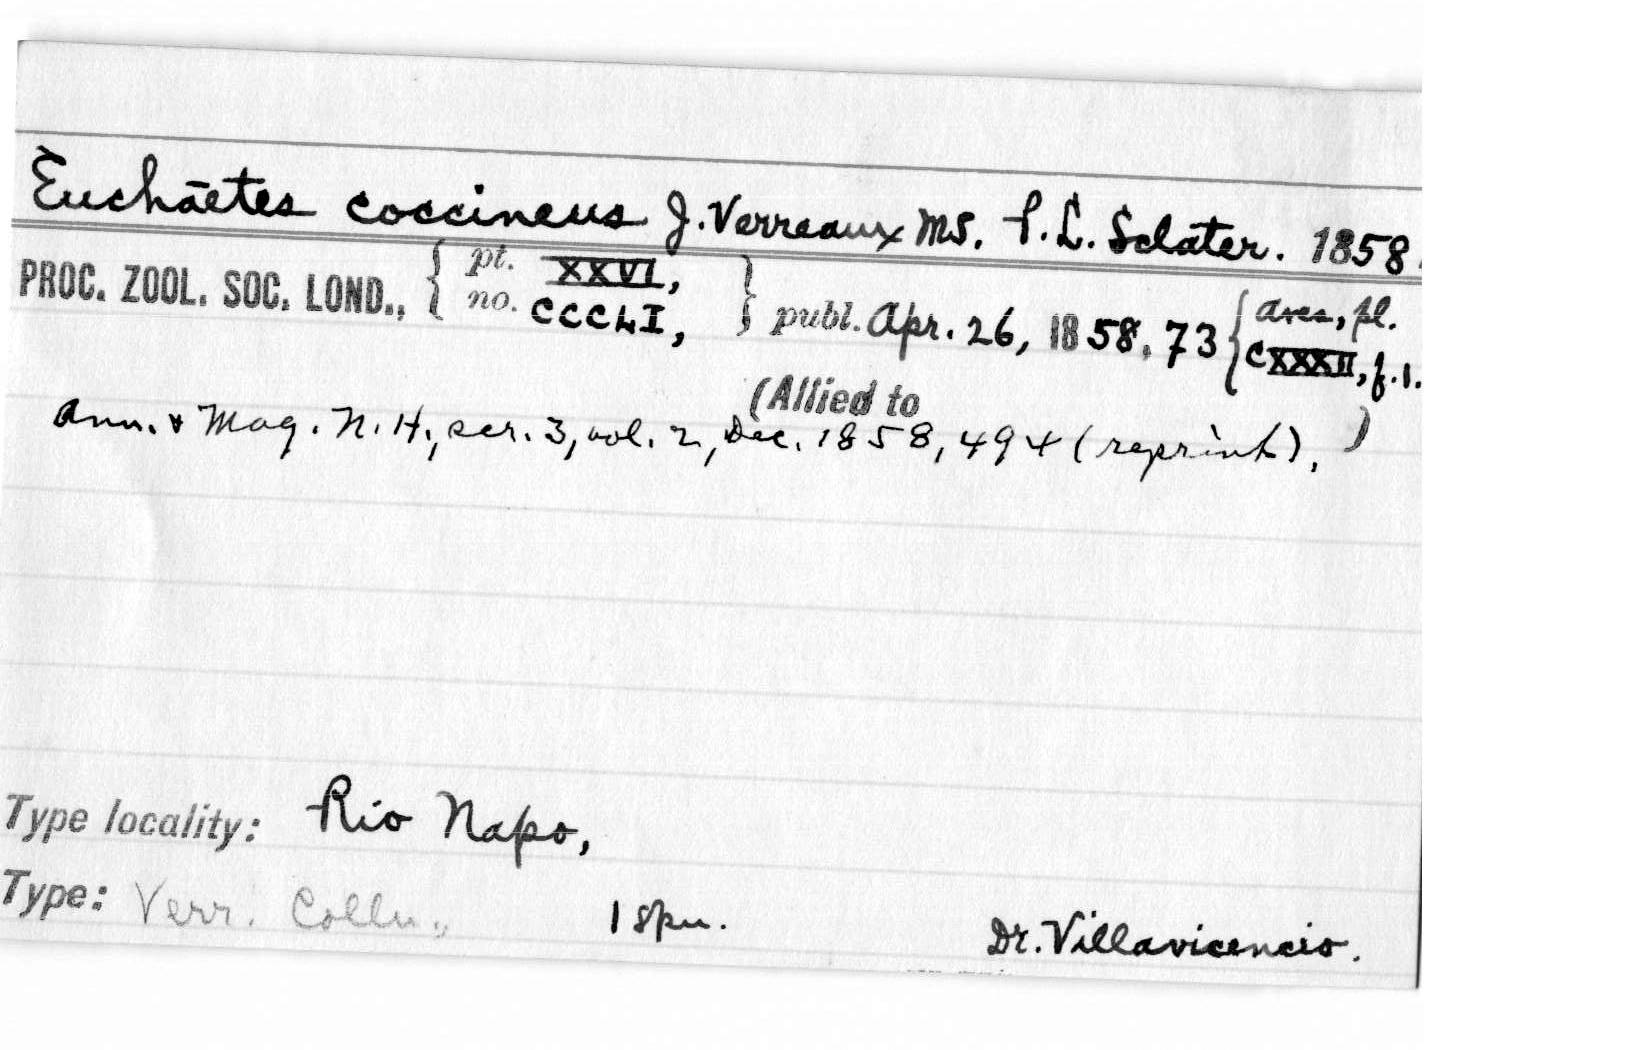 Euchætes coccineus J. Verreaux MS. P. L. Sclater. 1858.
PROC. ZOOL. SOC. LOND., { pt. XXVI, no. CCCLI, } publ. Apr. 26, 1858, 73 { Aves, pl. CXXXII, f. 1.
(Allied to
Ann. & Mag. N. H., ser. 3, vol. 2, Dec. 1858, 494 (reprint). )
Type locality: Rio Napo,
Type: Verr. Colln., 1 spn. Dr. Villavicencio.